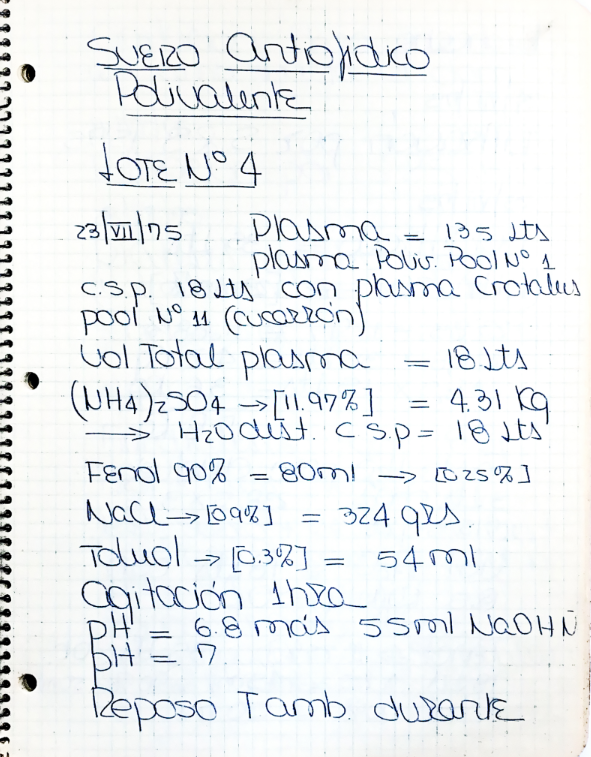 Suero Antiofidico
Polivalente
LOTE Nº 4
23|VII|75 Plasma = 13 5 Lts
plasma Poliv. Pool Nº 1
c.s.p. 18 Lts con plasma Crotalus
pool Nº 11 (cucarrón)
Vol Total plasma = 18 Lts
(NH4)2SO4 → [11.97%] = 4.31 Kg
→ H2O dist. c s.p = 18 Lts
Fenol 90% = 80ml → [0 25%]
NaCl → [0 9%] = 324 grs.
Toluol → [0.3%] = 54 ml
Agitación 1 hra
pH = 6.8 más 55ml NaOH N
pH = 7
Reposo T amb. durante